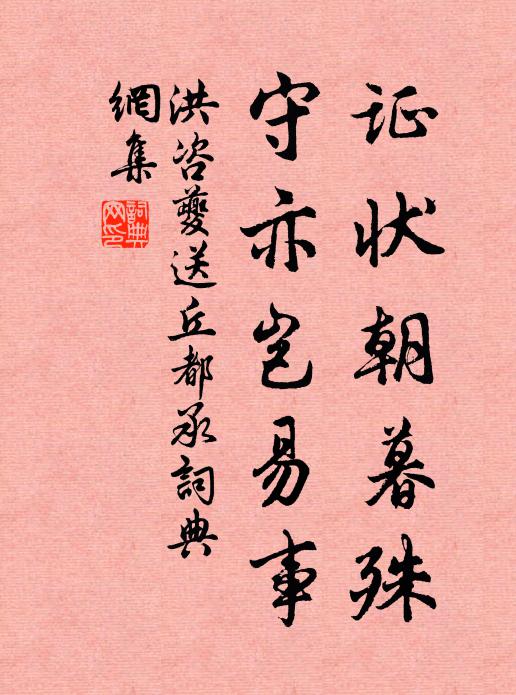 证状朝暮殊
守亦岂易事
洪咨夔送丘都承詞典
網集
詞典网印